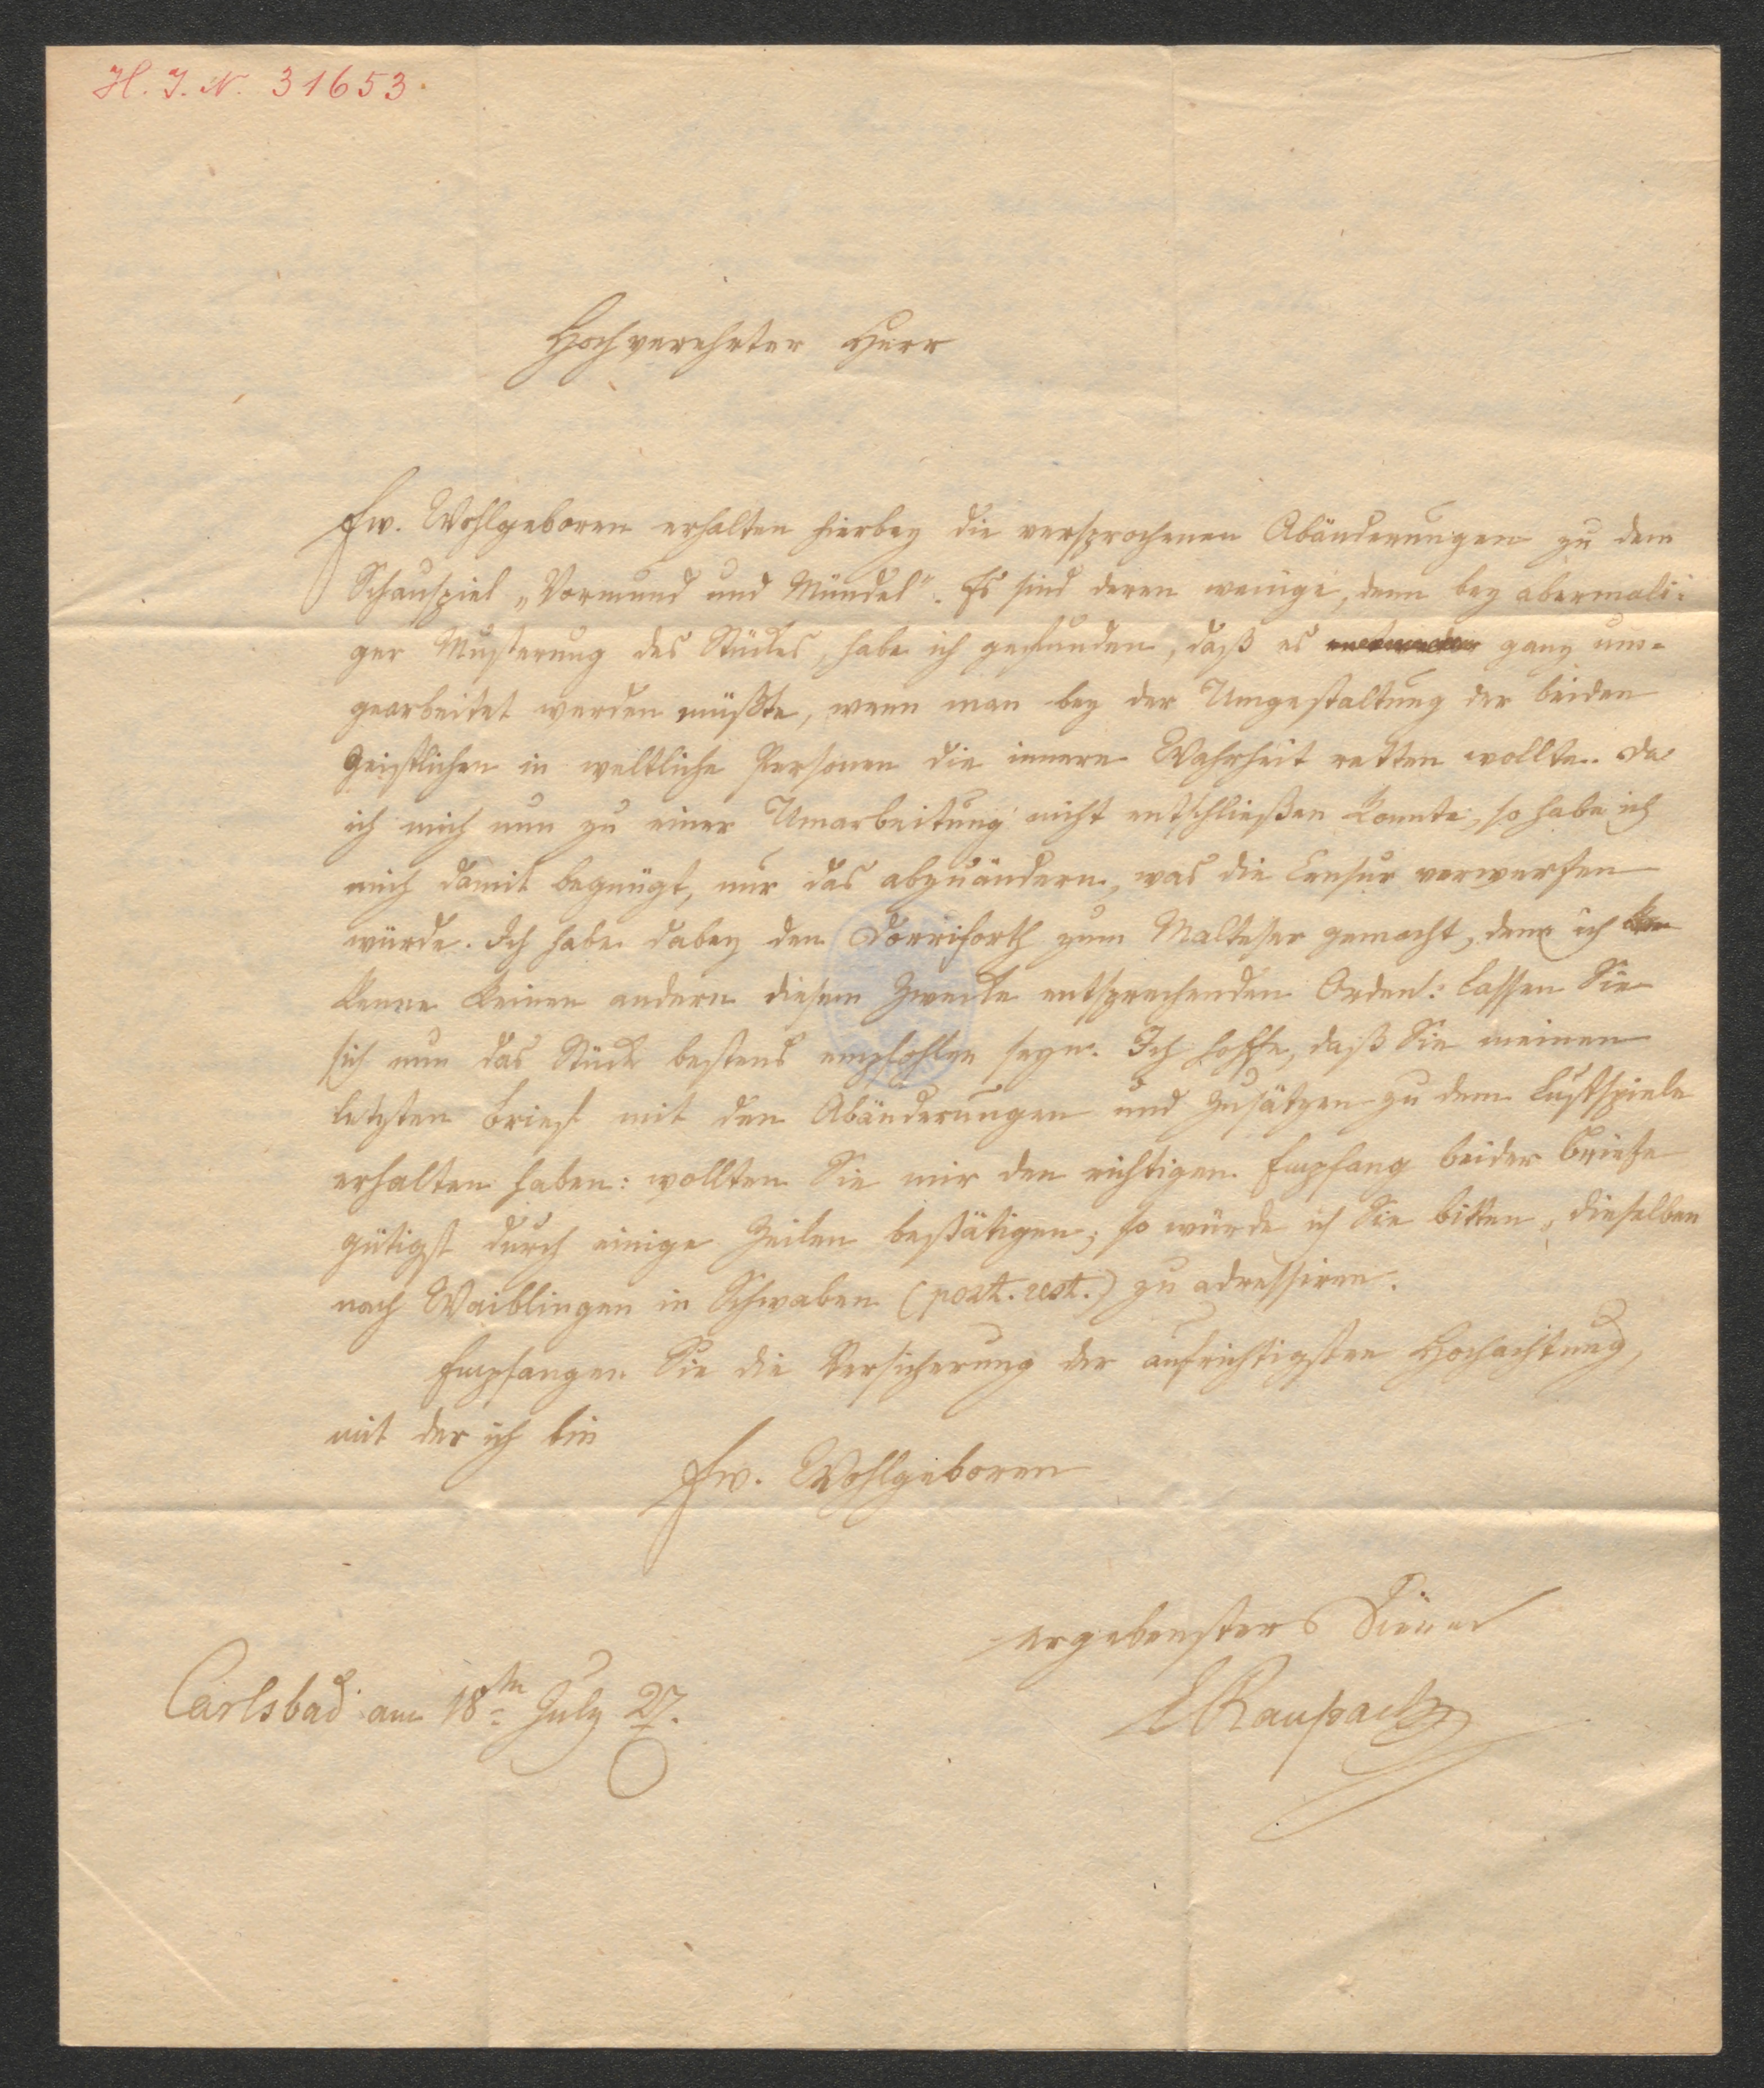 H. I. N. 31653.
Hochverehrter Herr
Ew. Wohlgeboren erhalten hierbey die versprochenen Abänderungen zu dem
Schauspiel „Vormund und Mündel“. Es sind deren wenige, denn bey abermali-
ger Musterung des Stückes, habe ich gefunden, daß es entweder ganz um-
gearbeitet werden müßte, wenn man bey der Umgestaltung der beiden
Geistlichen in weltliche Personen die innere Wahrheit retten wollte. Da
ich mich nun zu einer Umarbeitung nicht entschließen konnte, so habe ich
mich damit begnügt, nur das abzuändern, was die Censur verwerfen
würde. Ich habe dabey den Dorriforth zum Malteser gemacht, denn ich
kenne keinen andern diesem Zwecke entsprechenden Orden: Lassen Sie
sich nun das Stück bestens empfohlen seyn. Ich hoffe, daß Sie meinen
letzten Brief mit den Abänderungen und Zusätzen zu dem Lustspiele
erhalten haben: wollten Sie mir den richtigen Empfang beider Briefe
gütigst durch einige Zeilen bestätigen, so würde ich Sie bitten, dieselben
nach Waiblingen in Schwaben (post. rest.) zu adressiren.
Empfangen Sie die Versicherung der aufrichtigsten Hochachtung,
mit der ich bin
Ew. Wohlgeboren
ergebenster Diener
Carlsbad am 18ten July 27.
E Raupach